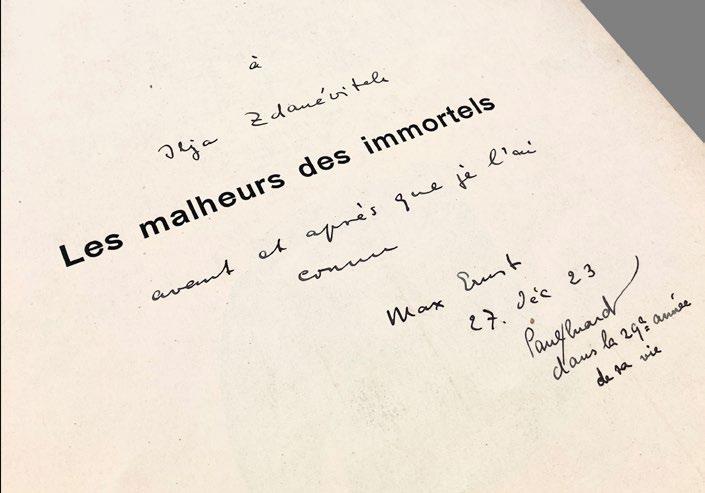 à
Ilja Zdanévitch
Les malheurs des immortels
avant et après que je l'ai
connu
Max Ernst
27. Déc 23
Paul Eluard
dans la 29e année
de sa vie